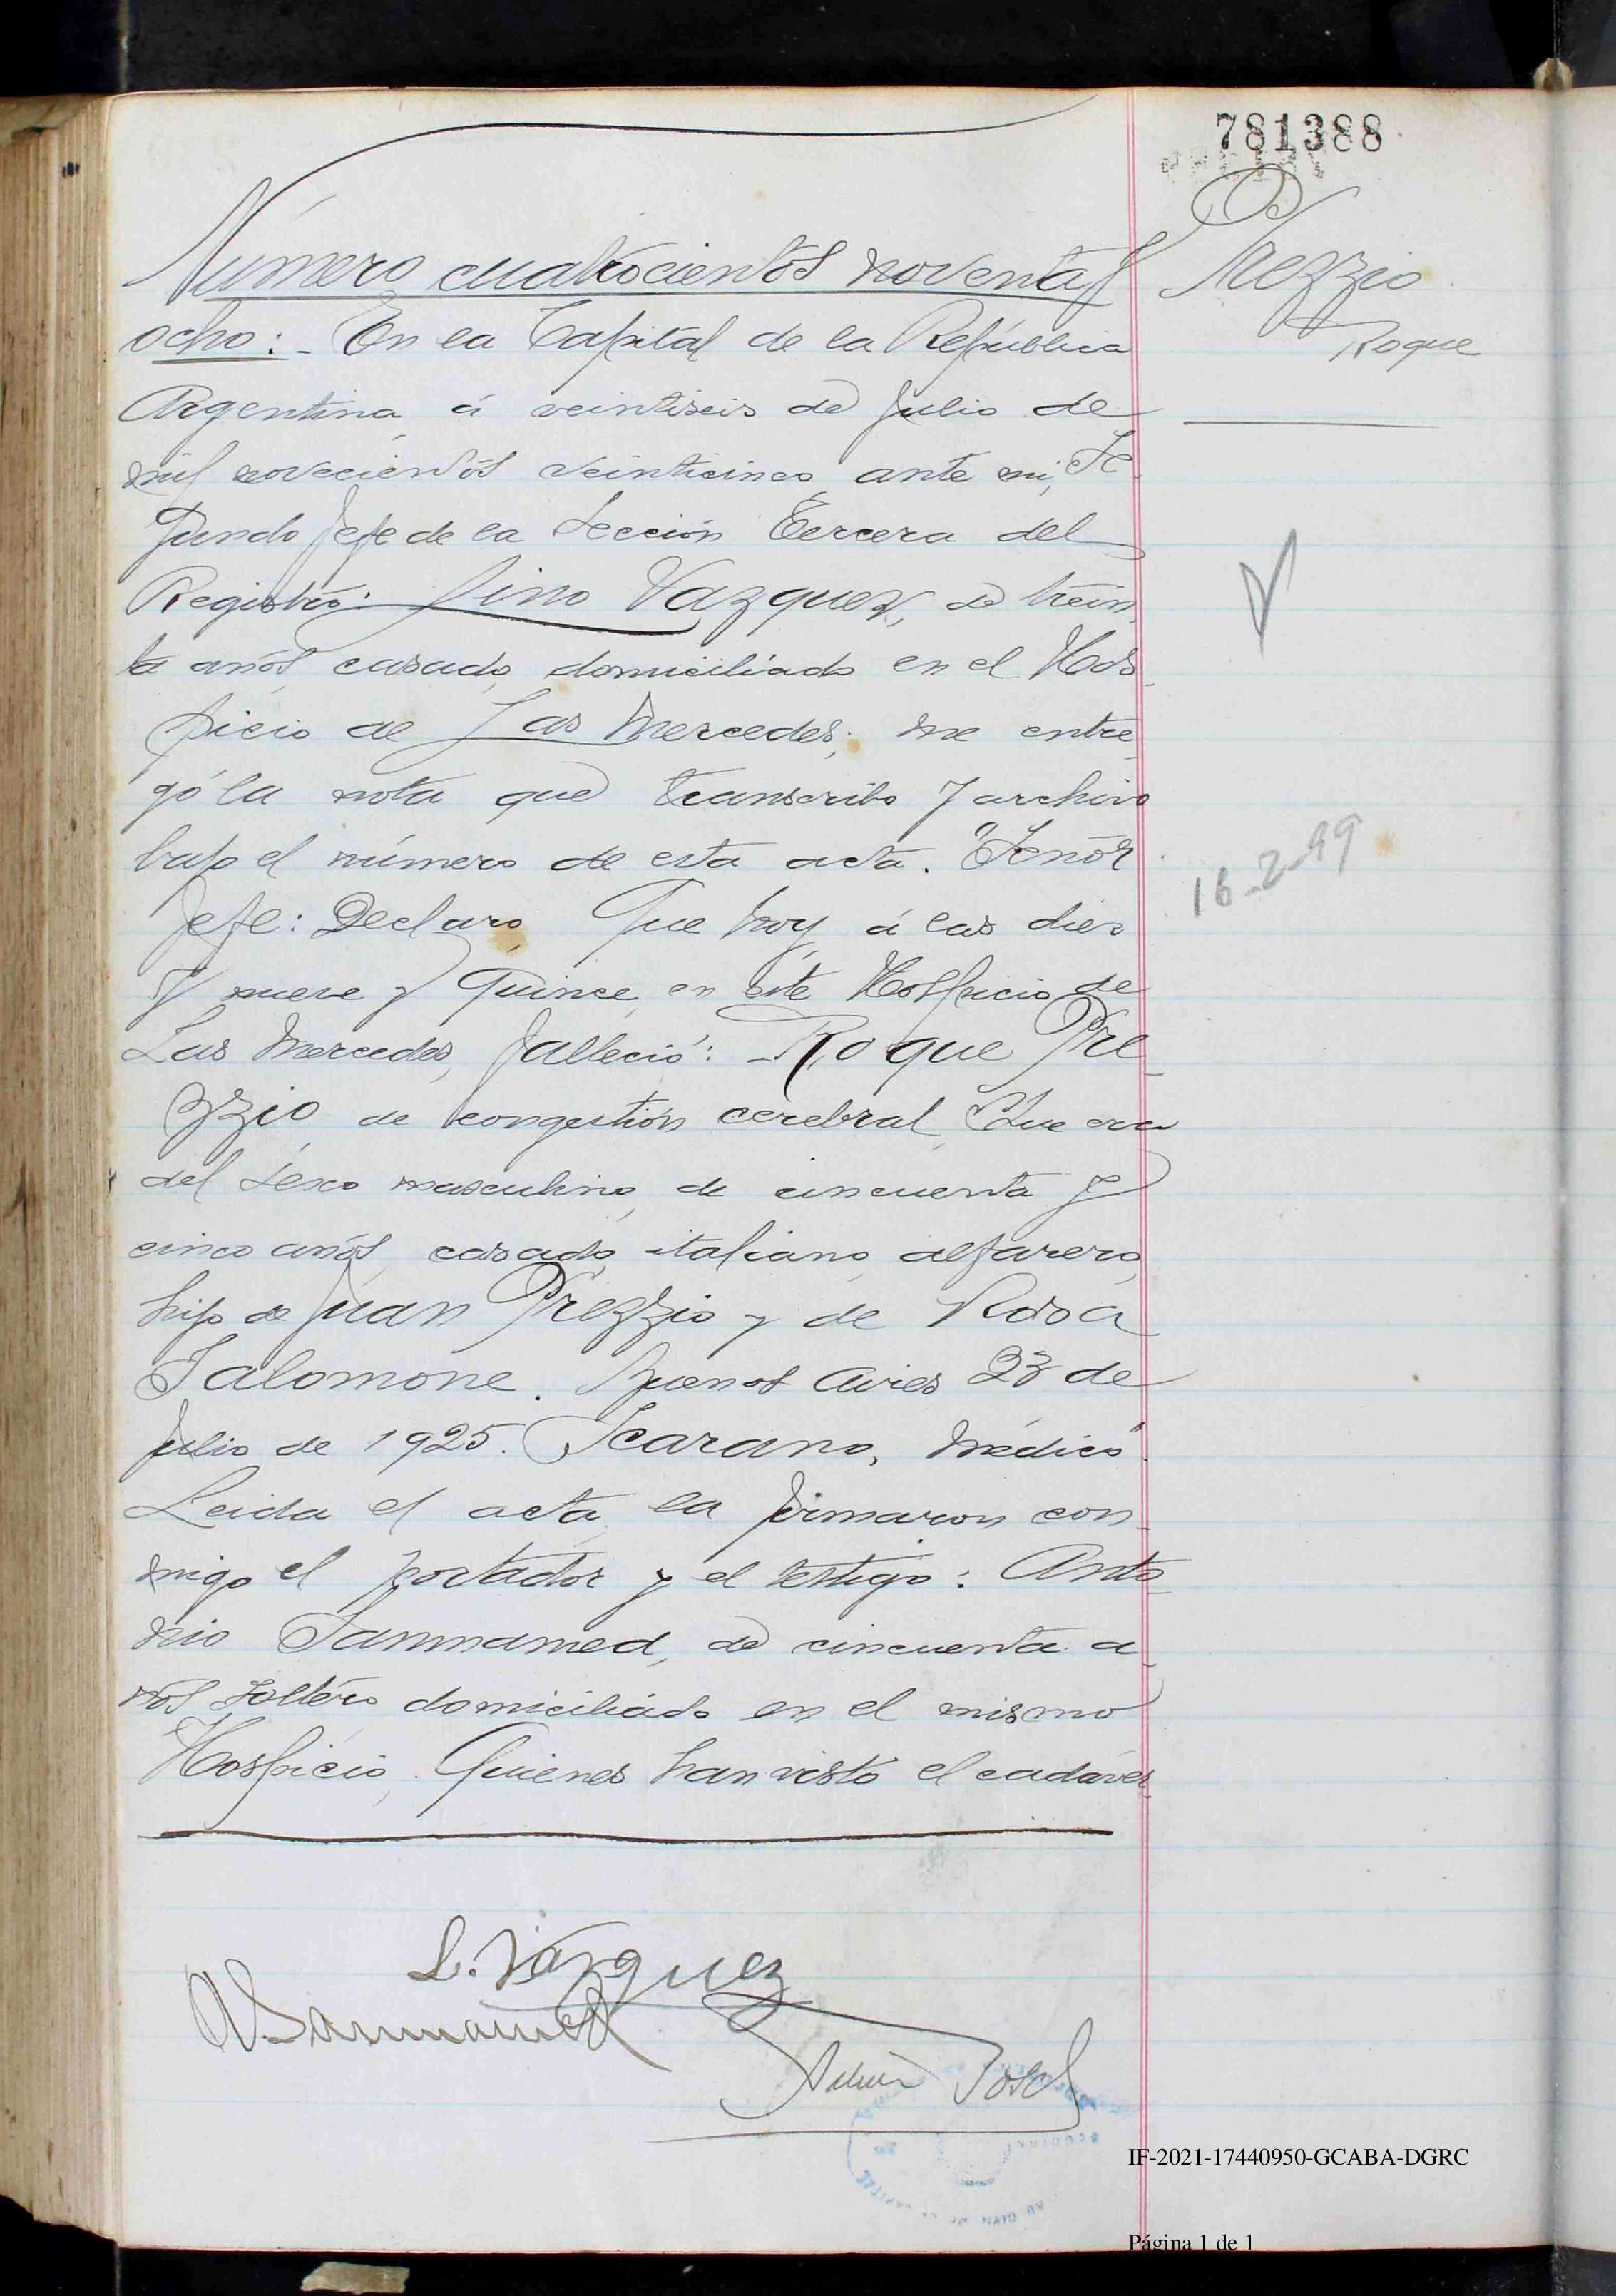 781388
Prezzio
Roque
Número cuatrocientos noventa y
ocho: - En la Capital de la República
Argentina, á veintiseis de Julio de
mil novecientos veinticinco, ante mi, Se
gundo Jefe de la Sección Tercera del
Registro: Lino Vazquez, de trein
ta años, casado, domiciliado en el Hos-
picio de Las Mercedes; me entre
gó la nota que transcribo y archivo
bajo el número de esta acta. "Señor
Jefe: Declaro, Que hoy, á las diez
y nueve y quince, en este Hospicio de
Las Mercedes, falleció: Roque Pre-
zzio de congestión cerebral, Que era
del sexo masculino, de cincuenta y
cinco años, casado, italiano, alfarero,
hijo de Juan Prezzio y de Rosa
Salomone. Buenos Aires 23 de
Julio de 1925. Scarano, médico"
Leida el acta, la firmaron con-
migo el portador y el testigo: Anto-
nio Sanmamed, de cincuenta a-
ños soltero domiciliado en el mismo
Hospicio, Quienes han visto el cadáver
16-2-99
L. Vázquez
A Sanmamed
IF-2021-17440950-GCABA-DGRC
Página 1 de 1